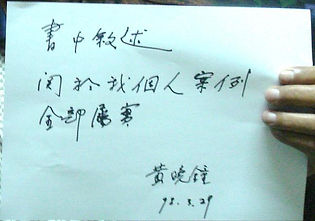 書中敘述
関於我個人案例
全部屬實
黃曉鐘
98.3.29